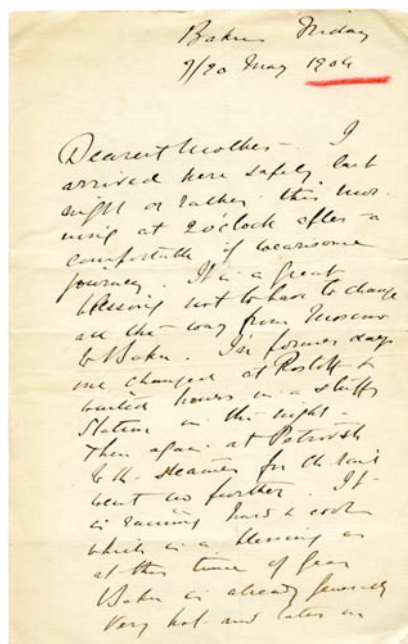 Baku Friday
7/20 May 1904
Dearest Mother - I
arrived here safely last
night or rather this mor-
ning at 2 o'clock after a
comfortable if wearisome
journey. It is a great
blessing not to have to change
all the way from Moscow
to Baku. In former days
one changed at Rostoff &
waited hours in a stuffy
station in the night -
Then again at Petrovsk
to the steamer for the rail
went no further. It
is raining hard & cool
which is a blessing as
at this time of year
Baku is already generally
very hot and later on